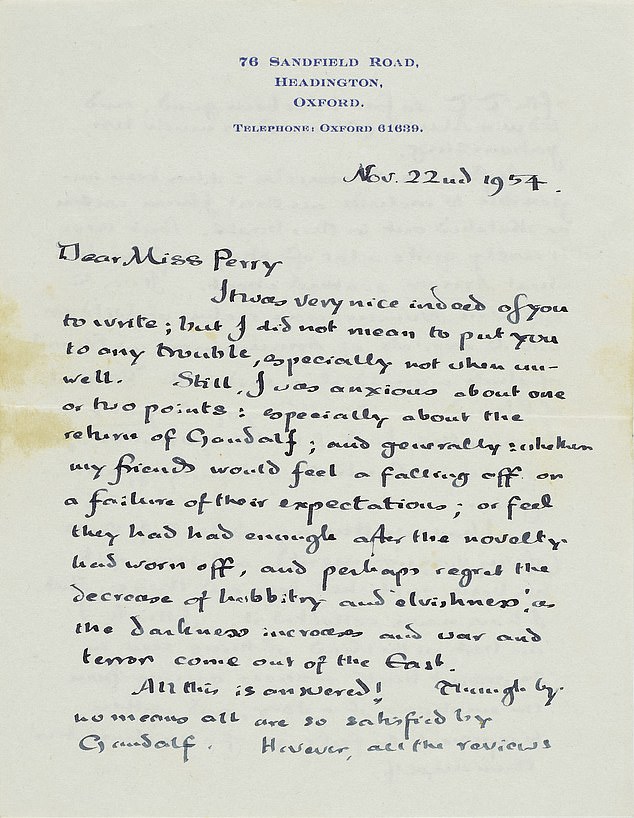 76 SANDFIELD ROAD,
HEADINGTON,
OXFORD.
TELEPHONE: OXFORD 61639.
Nov. 22nd 1954.
Dear Miss Perry
It was very nice indeed of you
to write; but I did not mean to put you
to any trouble, especially not when un-
well. Still, I was anxious about one
or two points: especially about the
return of Gandalf; and generally: whether
my friends would feel a falling off or
a failure of their expectations; or feel
they had had enough after the novelty
had worn off, and perhaps regret the
decrease of hobbitry and 'elvishness', as
the darkness increases and war and
terror come out of the East.
All this is answered! Though by
no means all are so satisfied by
Gandalf. However, all the reviews